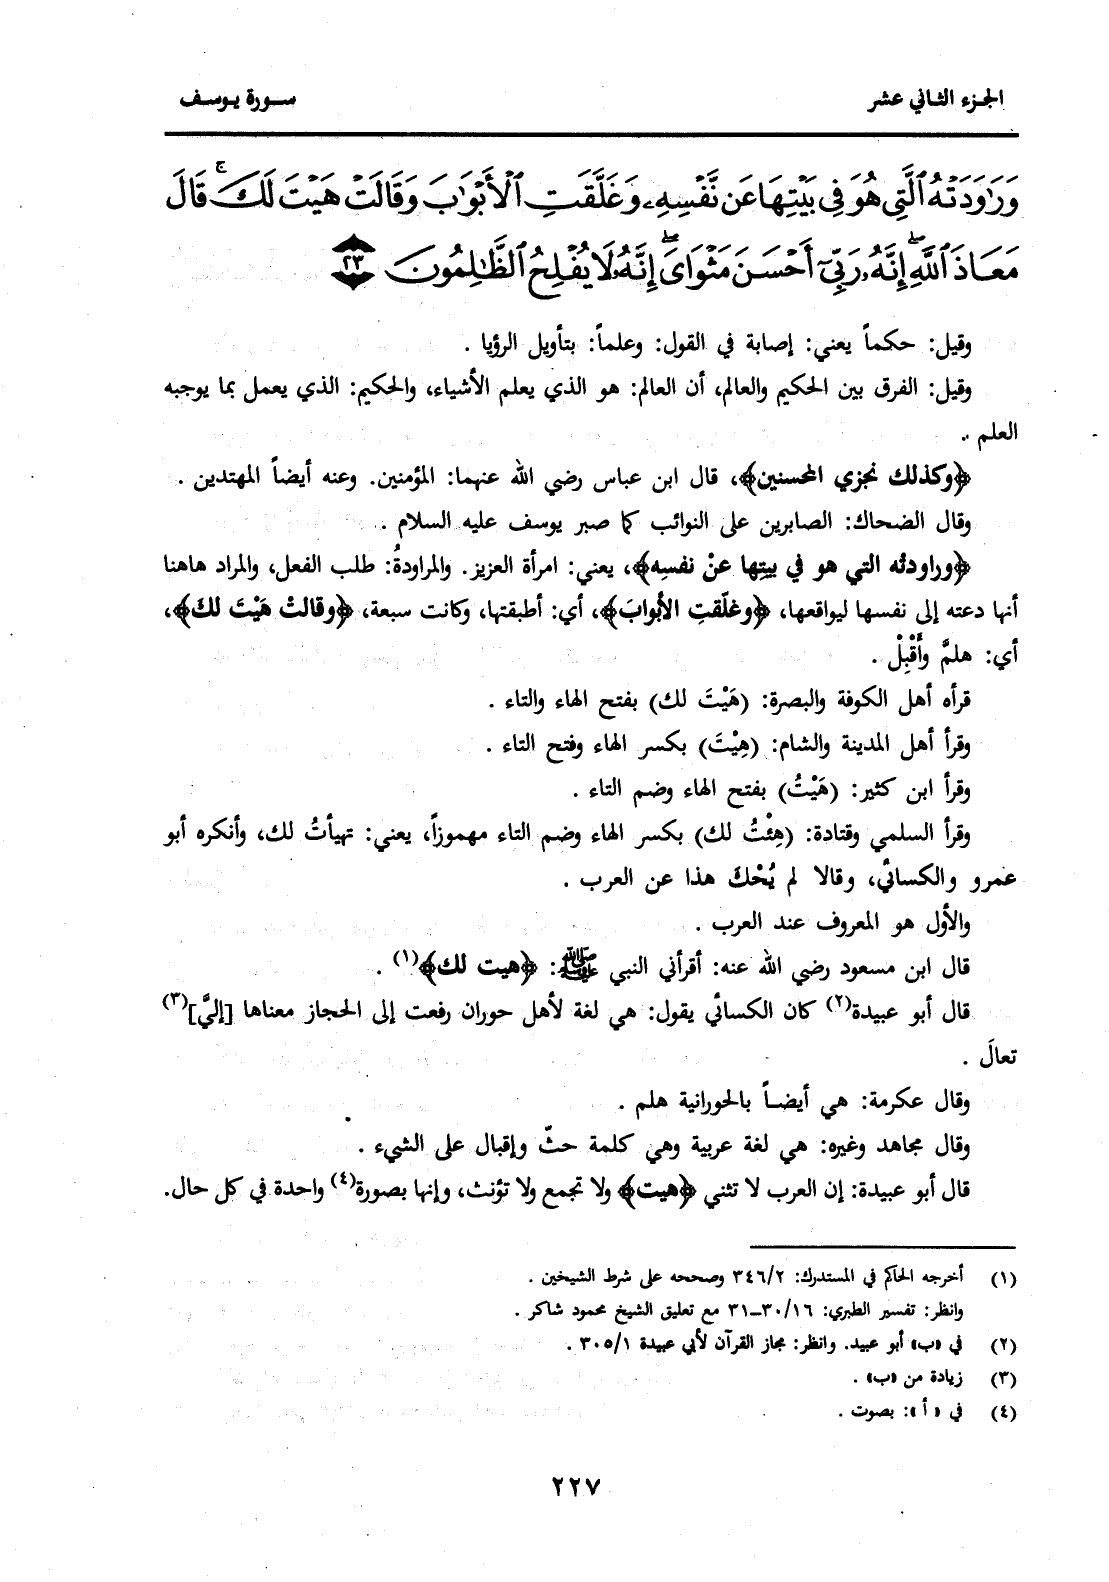 الجزء الثاني عشر
سورة يوسف
وَرَٰوَدَتْهُ ٱلَّتِي هُوَ فِي بَيْتِهَا عَن نَّفْسِهِۦ وَغَلَّقَتِ ٱلْأَبْوَٰبَ وَقَالَتْ هَيْتَ لَكَ ۚ قَالَ
مَعَاذَ ٱللَّهِ ۖ إِنَّهُۥ رَبِّيٓ أَحْسَنَ مَثْوَايَ ۖ إِنَّهُۥ لَا يُفْلِحُ ٱلظَّٰلِمُونَ ٢٣
وقيل: حكماً يعني: إصابة في القول: وعلماً: بتأويل الرؤيا .
وقيل: الفرق بين الحكيم والعالم، أن العالم: هو الذي يعلم الأشياء، والحكيم: الذي يعمل بما يوجبه
العلم .
﴿وكذلك نجزي المحسنين﴾، قال ابن عباس رضي الله عنهما: المؤمنين. وعنه أيضاً المهتدين .
وقال الضحاك: الصابرين على النوائب كما صبر يوسف عليه السلام .
﴿وراودته التي هو في بيتِها عنْ نفسِه﴾، يعني: امرأة العزيز. والمراودةُ: طلب الفعل، والمراد هاهنا
أنها دعته إلى نفسها ليواقعها، ﴿وغلّقتِ الأبوابَ﴾، أي: أطبقتها، وكانت سبعة، ﴿وقالتْ هَيْتَ لكَ﴾،
أي: هلمَّ وأَقْبِلْ .
قرأه أهل الكوفة والبصرة: (هَيْتَ لك) بفتح الهاء والتاء .
وقرأ أهل المدينة والشام: (هِيْتَ) بكسر الهاء وفتح التاء .
وقرأ ابن كثير: (هَيْتُ) بفتح الهاء وضم التاء .
وقرأ السلمي وقتادة: (هِئْتُ لك) بكسر الهاء وضم التاء مهموزاً، يعني: تهيأتُ لك، وأنكره أبو
عمرو والكسائي، وقالا لم يُحْكَ هذا عن العرب .
والأول هو المعروف عند العرب .
قال ابن مسعود رضي الله عنه: أقرأني النبي ﷺ: ﴿هيت لك﴾(١) .
قال أبو عبيدة(٢) كان الكسائي يقول: هي لغة لأهل حوران رفعت إلى الحجاز معناها [إليَّ](٣)
تعالَ .
وقال عكرمة: هي أيضاً بالحورانية هلم .
وقال مجاهد وغيره: هي لغة عربية وهي كلمة حثّ وإقبال على الشيء .
قال أبو عبيدة: إن العرب لا تثني ﴿هيت﴾ ولا تجمع ولا تؤنث، وإنها بصورة(٤) واحدة في كل حال.
(١) أخرجه الحاكم في المستدرك: ٣٤٦/٢ وصححه على شرط الشيخين .
وانظر: تفسير الطبري: ٣٠/١٦_٣١ مع تعليق الشيخ محمود شاكر .
(٢) في «ب» أبو عبيد. وانظر: مجاز القرآن لأبي عبيدة ٣٠٥/١ .
(٣) زيادة من «ب» .
(٤) في « أ »: بصوت .
٢٢٧